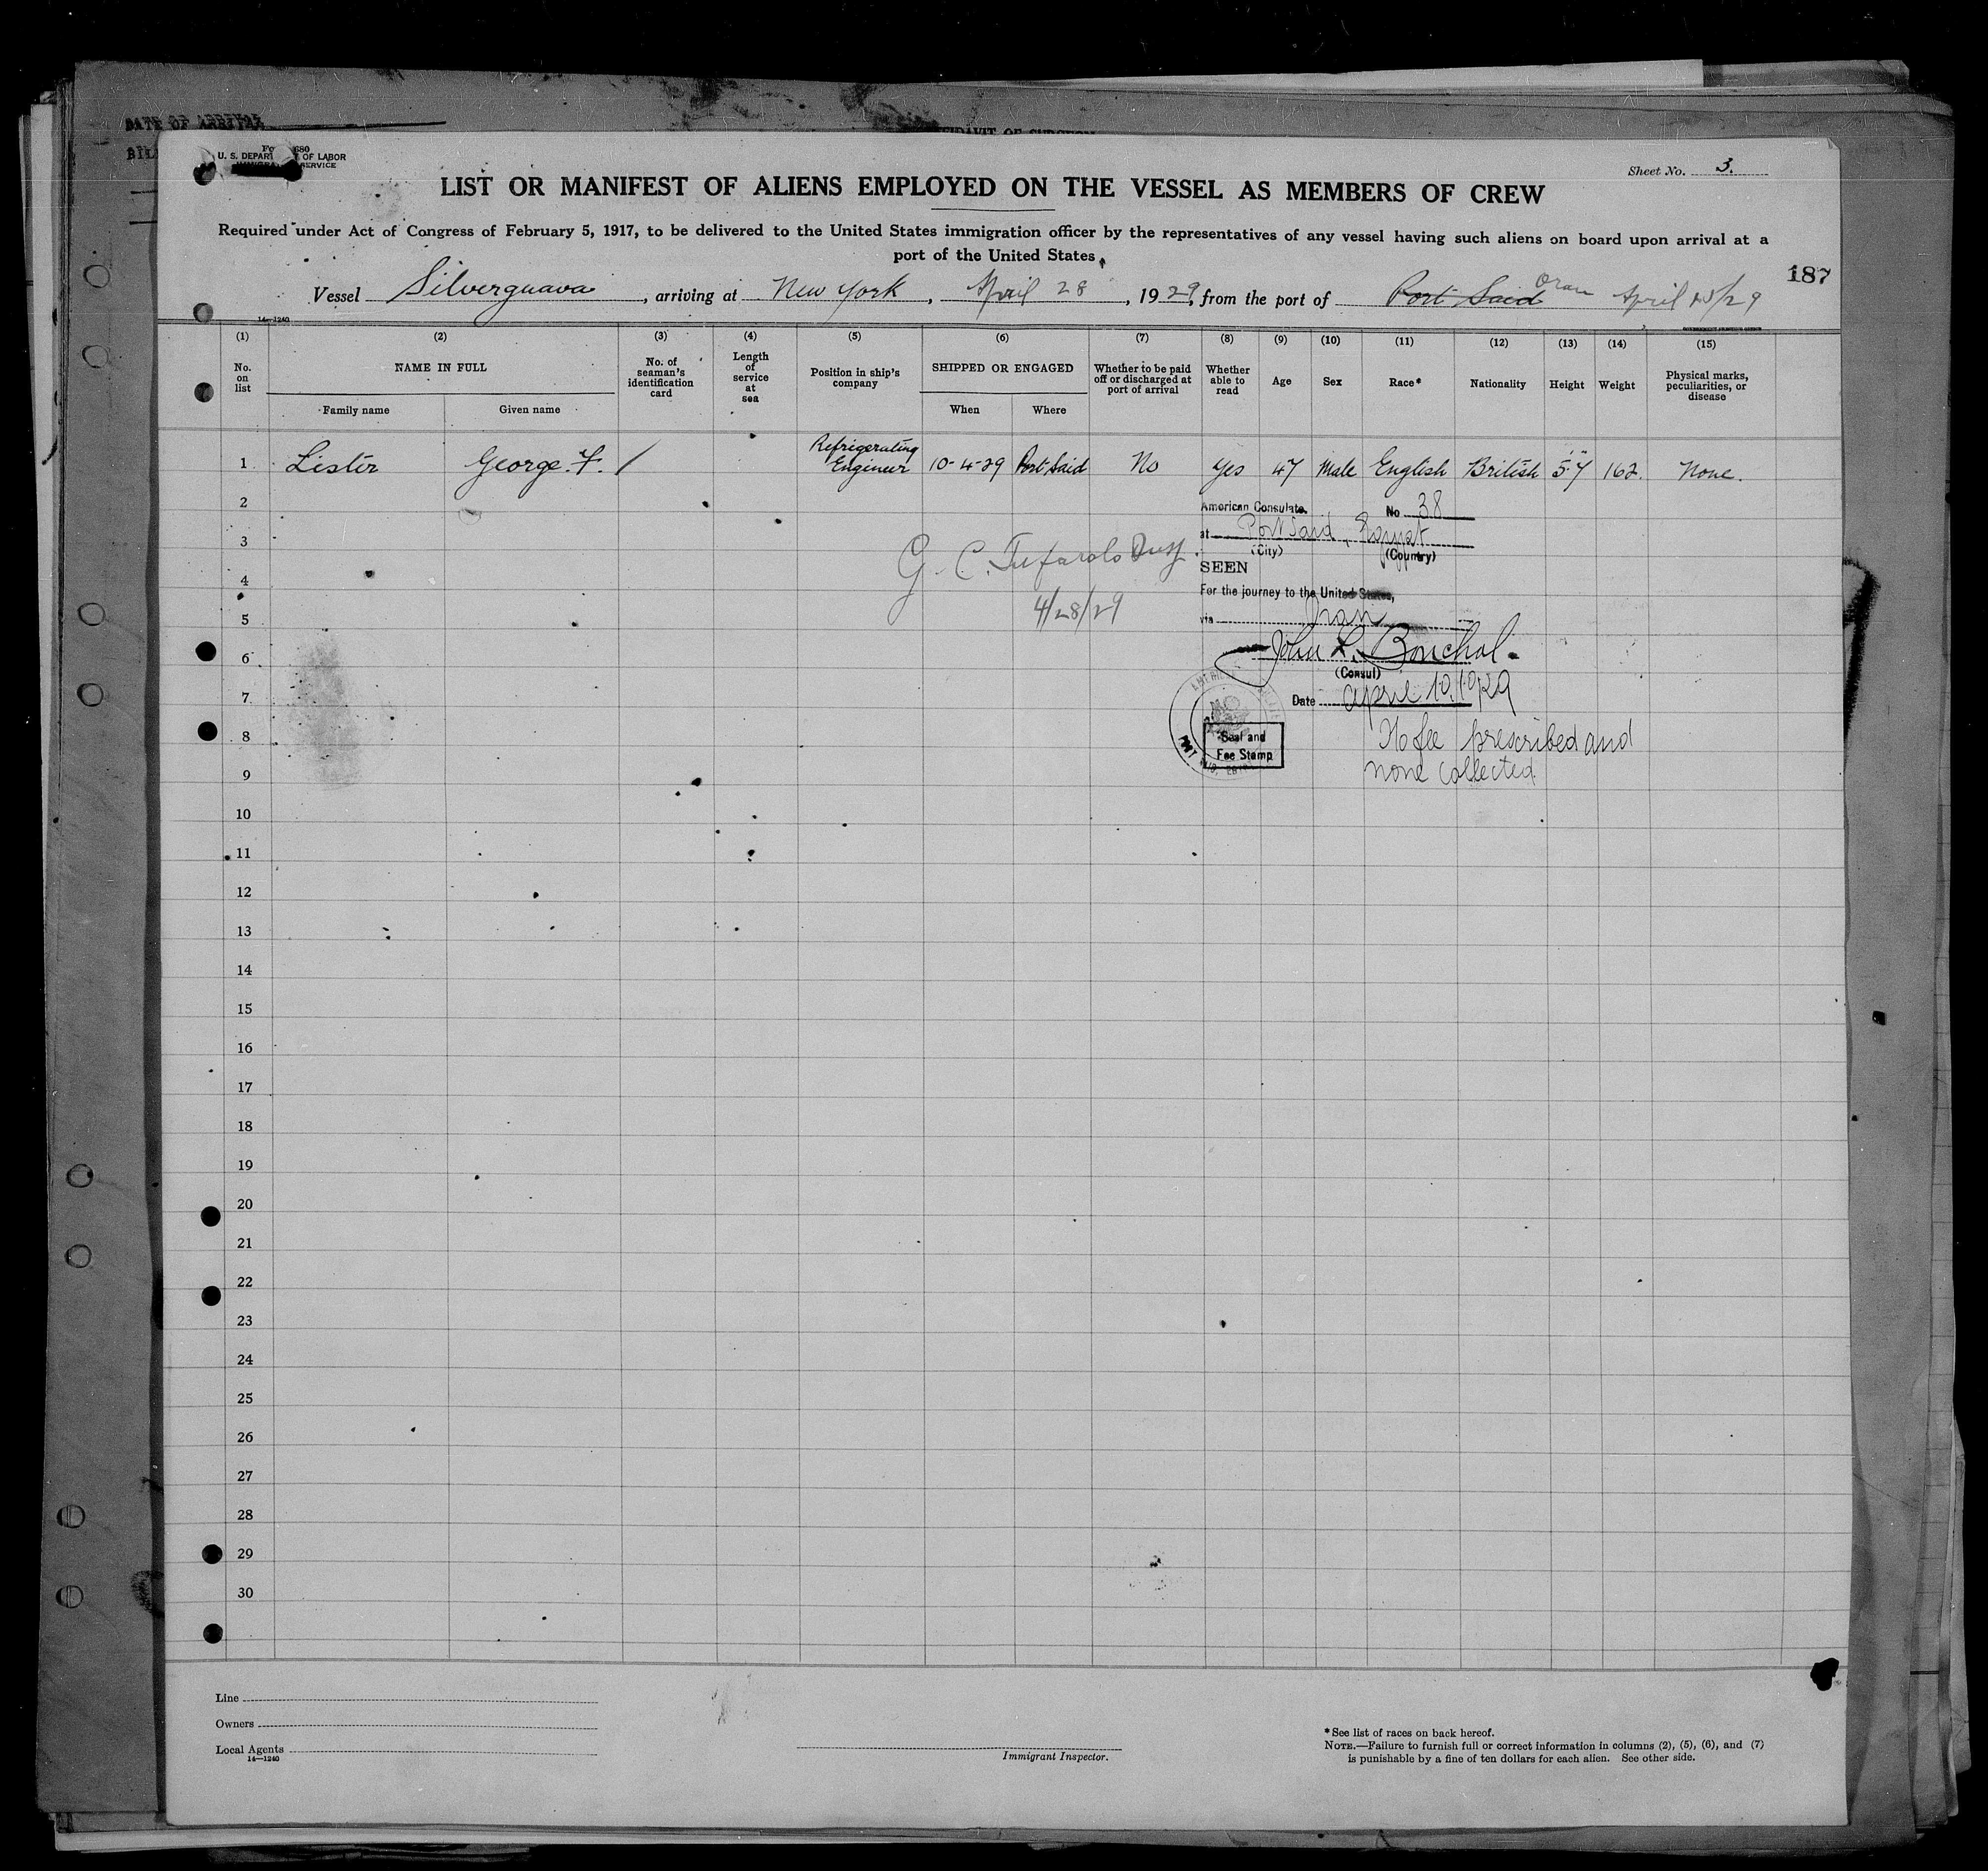 DATE OF ARRIVAL
AFFIDAVIT OF SURGEON
U. S. DEPARTMENT OF LABOR
IMMIGRATION SERVICE
Sheet No. 3.
LIST OR MANIFEST OF ALIENS EMPLOYED ON THE VESSEL AS MEMBERS OF CREW
Required under Act of Congress of February 5, 1917, to be delivered to the United States immigration officer by the representatives of any vessel having such aliens on board upon arrival at a
port of the United States
187
Vessel Silverguava, arriving at New York, April 28, 1929, from the port of Port Said Oran April /29
14—1240
GOVERNMENT PRINTING OFFICE
(1) (2) (3) (4) (5) (6) (7) (8) (9) (10) (11) (12) (13) (14) (15)
No. on list
NAME IN FULL
Family name
Given name
No. of seaman's identification card
Length of service at sea
Position in ship's company
SHIPPED OR ENGAGED
When
Where
Whether to be paid off or discharged at port of arrival
Whether able to read
Age
Sex
Race*
Nationality
Height
Weight
Physical marks, peculiarities, or disease
1 Lister George. F. / Refrigerating Engineer 10-4-29 Port-Said No Yes 47 Male English British 5'7" 162. None.
2
3
4
5
6
7
8
9
10
11
12
13
14
15
16
17
18
19
20
21
22
23
24
25
26
27
28
29
30
G. C.
4/28/29
American Consulate. No 38
at Port Said, Egypt
(City) (Country)
SEEN
For the journey to the United States,
via Oran
John L. Bouchal.
(Consul)
Date April 10, 1929
Seal and
Fee Stamp
No fee prescribed and
none collected.
Line
Owners
Local Agents
14—1240
Immigrant Inspector.
*See list of races on back hereof.
NOTE.—Failure to furnish full or correct information in columns (2), (5), (6), and (7)
is punishable by a fine of ten dollars for each alien. See other side.